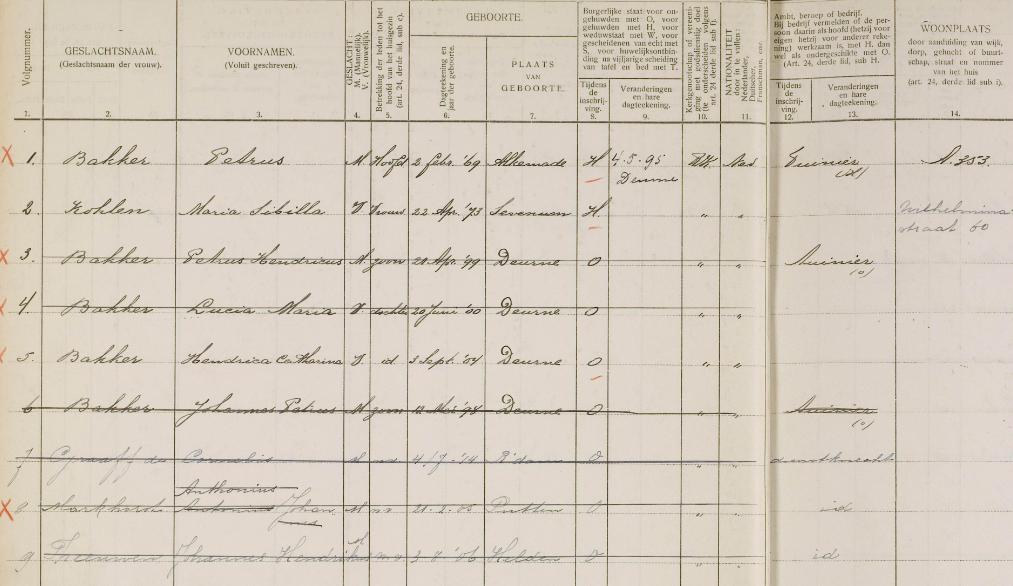 Volgnummer.
GESLACHTSNAAM.
(Geslachtsnaam der vrouw).
VOORNAMEN.
(Voluit geschreven).
GESLACHT:
M. (Mannelijk).
V. (Vrouwelijk).
Betrekking der leden tot het
hoofd van het huisgezin
(art. 24, derde lid, sub c).
GEBOORTE.
Dagteekening en
jaar der geboorte.
PLAATS
VAN
GEBOORTE.
Burgerlijke staat voor on-
gehuwden met O, voor
gehuwden met H, voor
weduwstaat met W, voor
gescheidenen van echt met
S, voor huwelijksontbin-
ding na vijfjarige scheiding
van tafel en bed met T.
Tijdens
de
inschrij-
ving.
Veranderingen
en hare
dagteekening.
Kerkgenootschap of vereeni-
ging met godsdienstig doel
(te onderscheiden volgens
art. 24, derde lid sub f).
NATIONALITEIT
door in te vullen:
Nederlander,
Duitscher,
Franschman, enz.
Ambt, beroep of bedrijf.
Bij bedrijf vermelden of de per-
soon daarin als hoofd (hetzij voor
eigen hetzij voor anderer reke-
ning) werkzaam is, met H. dan
wel als ondergeschikte met O.
(Art. 24, derde lid, sub H.
Tijdens
de
inschrij-
ving.
Veranderingen
en hare
dagteekening.
WOONPLAATS
door aanduiding van wijk,
dorp, gehucht of buurt-
schap, straat en nommer
van het huis
(art. 24, derde lid sub i).
1. 2. 3. 4. 5. 6. 7. 8. 9. 10. 11. 12. 13. 14.
1. Bakker Petrus M Hoofd 2 Febr. '69 Alkemade H 4.5.95 Ned Tuinier A.253.
Deurne
2. Kohlen Maria Sibilla V Vrouw 22 Apr. '73 Sevenum H. " " Wilhelmina
straat 60
3. Bakker Petrus Hendricus M zoon 20 Apr. '99 Deurne O " " Tuinier
(o)
4. Bakker Lucia Maria V dochter 20 Juni '00 Deurne O " "
5. Bakker Hendrica Catharina V id 3 Sept. '04 Deurne O " "
6 Bakker Johannes Petrus M zoon Deurne O " " Tuinier
(o)
7 Graaff de Cornelis M R'dam O " " dienstknecht
Anthonius
8 Antonius Johan M 21-2-05 Putten O " " id
nes
9 Johannes Hendrikus M 3-8-'06 Helden O id